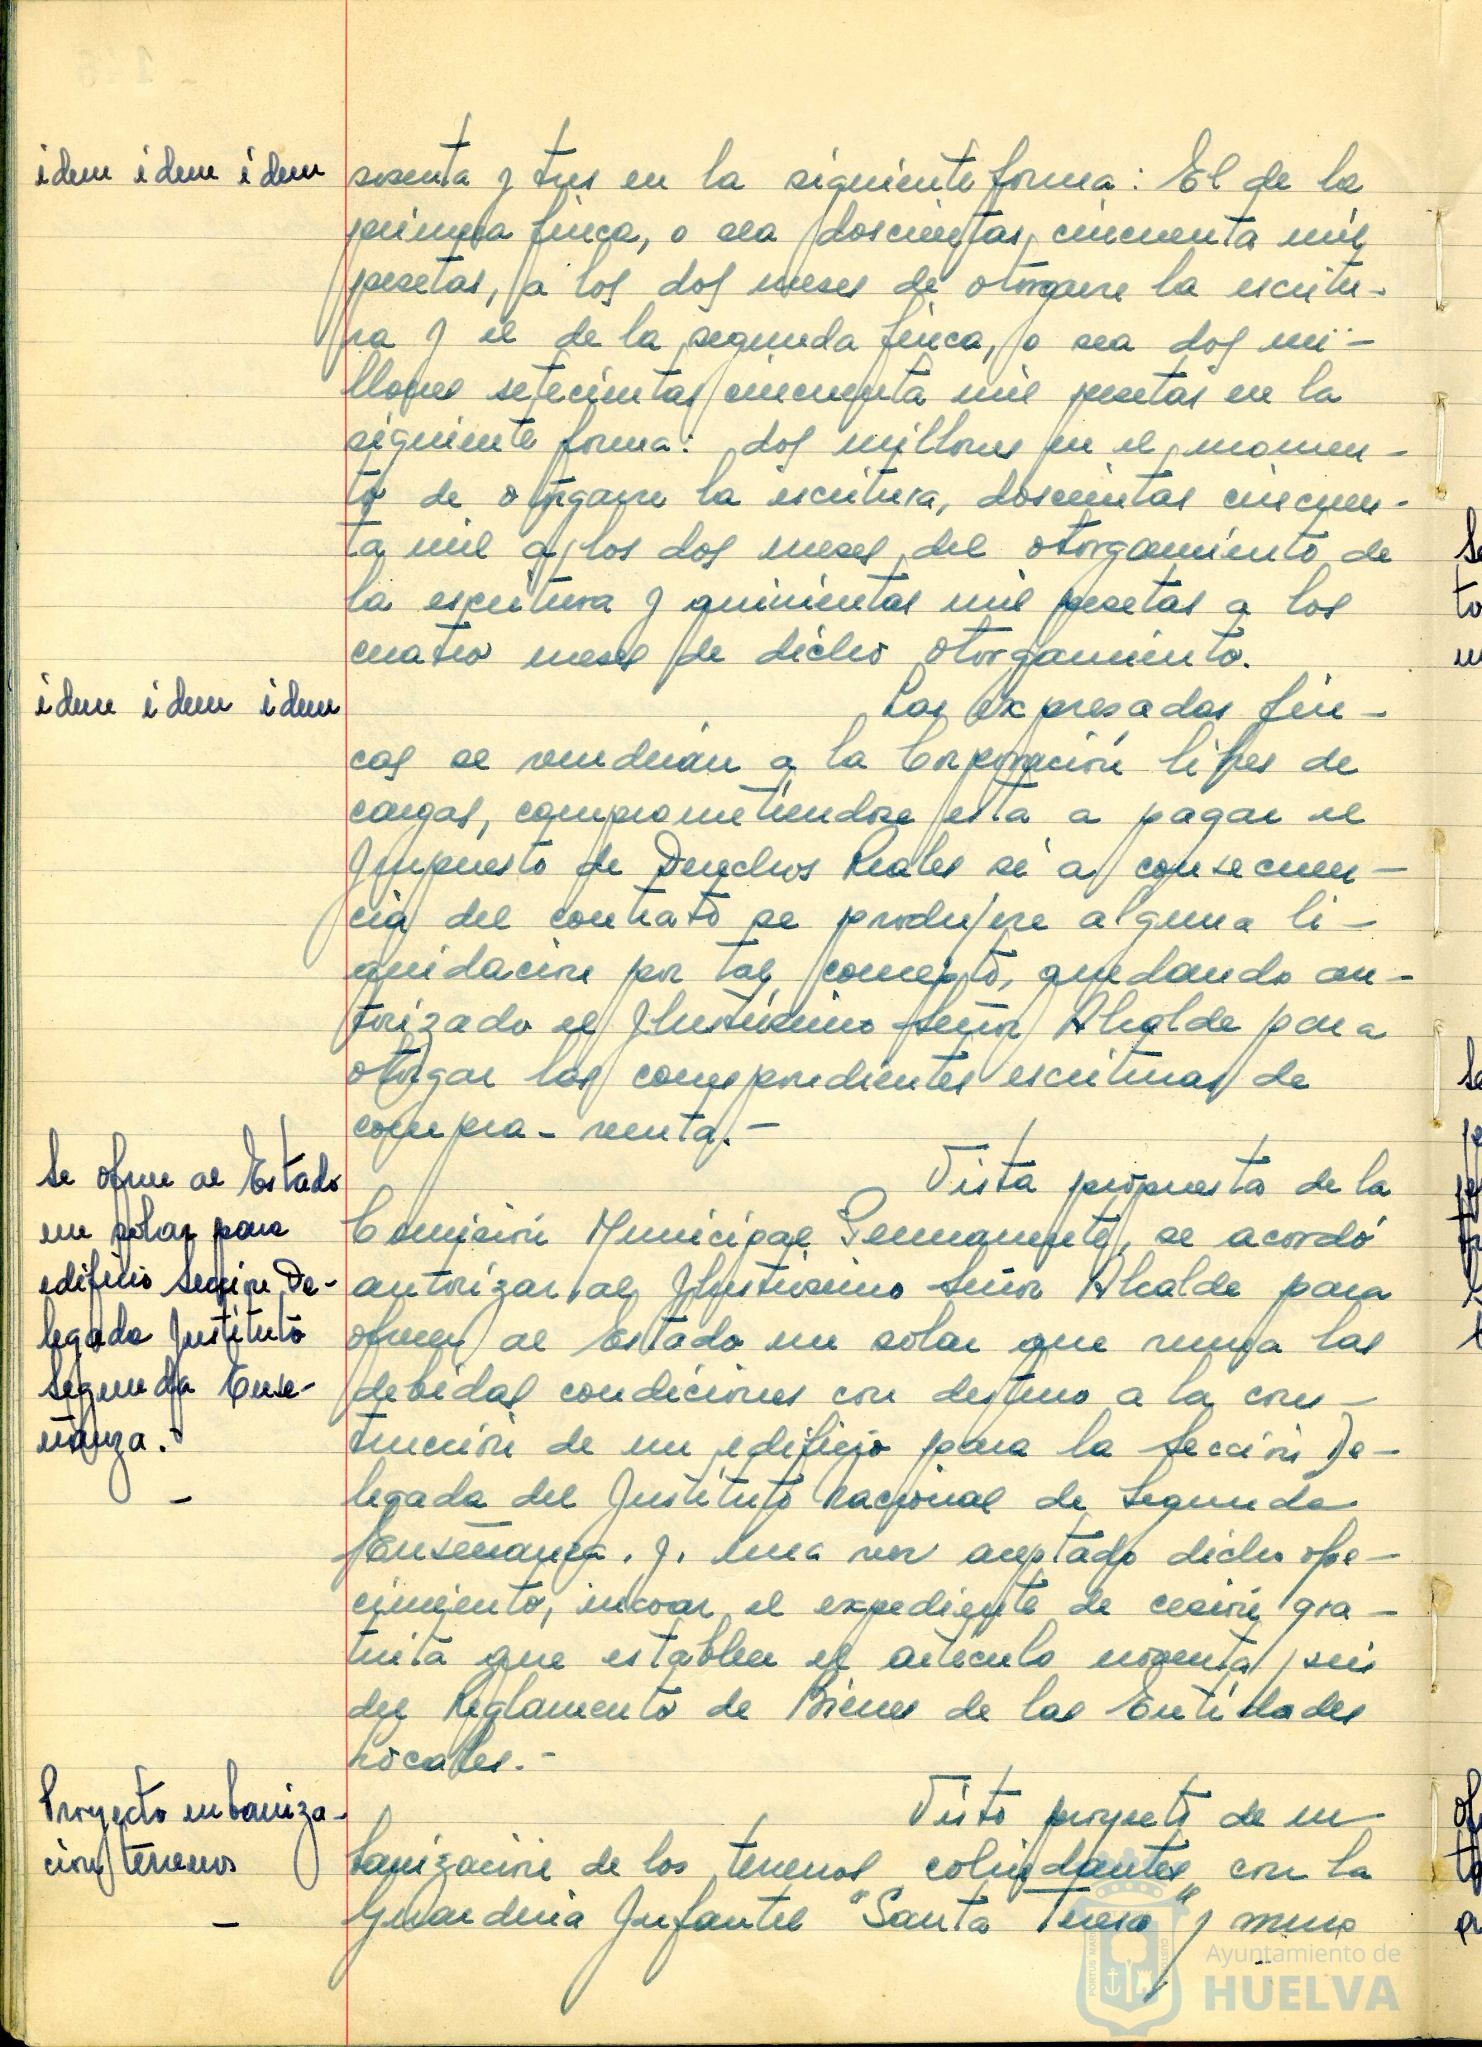 idem idem idem
sesenta y tres en la siguiente forma: El de la
primera finca, o sea doscientas cincuenta mil
pesetas, a los dos meses de otorgarse la escritu-
ra y el de la segunda finca, o sea dos mi-
llones setecientas cincuenta mil pesetas en la
siguiente forma: dos millones en el momen-
to de otorgarse la escritura, doscientas cincuen-
ta mil a los dos meses del otorgamiento de
la escritura y quinientas mil pesetas a los
cuatro meses de dicho otorgamiento.
idem idem idem
Las expresadas fin-
cas se venderán a la Corporación libres de
cargas, comprometiendose esta a pagar el
Impuesto de Derechos Reales si a consecuen-
cia del contrato se produjere alguna li-
quidación por tal concepto, quedando au-
torizado el Ilustrísimo Señor Alcalde para
otorgar las correspondientes escrituras de
compra-venta.-
Se ofrece al Estado
un solar para
edificio Sección De-
legada Instituto
Segunda Ense-
ñanza.-
Vista propuesta de la
Comisión Municipal Permanente, se acordó
autorizar al Ilustrísimo Señor Alcalde para
ofrecer al Estado un solar que reuna las
debidas condiciones con destino a la cons-
trucción de un edificio para la Sección De-
legada del Instituto Nacional de Segunda
Enseñanza. y. una vez aceptado dicho ofre-
cimiento, incoar el expediente de cesión gra-
tuita que establece el artículo noventa y seis
del Reglamento de Bienes de las Entidades
Locales.-
Proyecto urbaniza-
ción terrenos
Visto proyecto de ur
banización de los terrenos colindantes con la
Guarderia Infantil "Santa Teresa" y muro
Ayuntamiento de
HUELVA